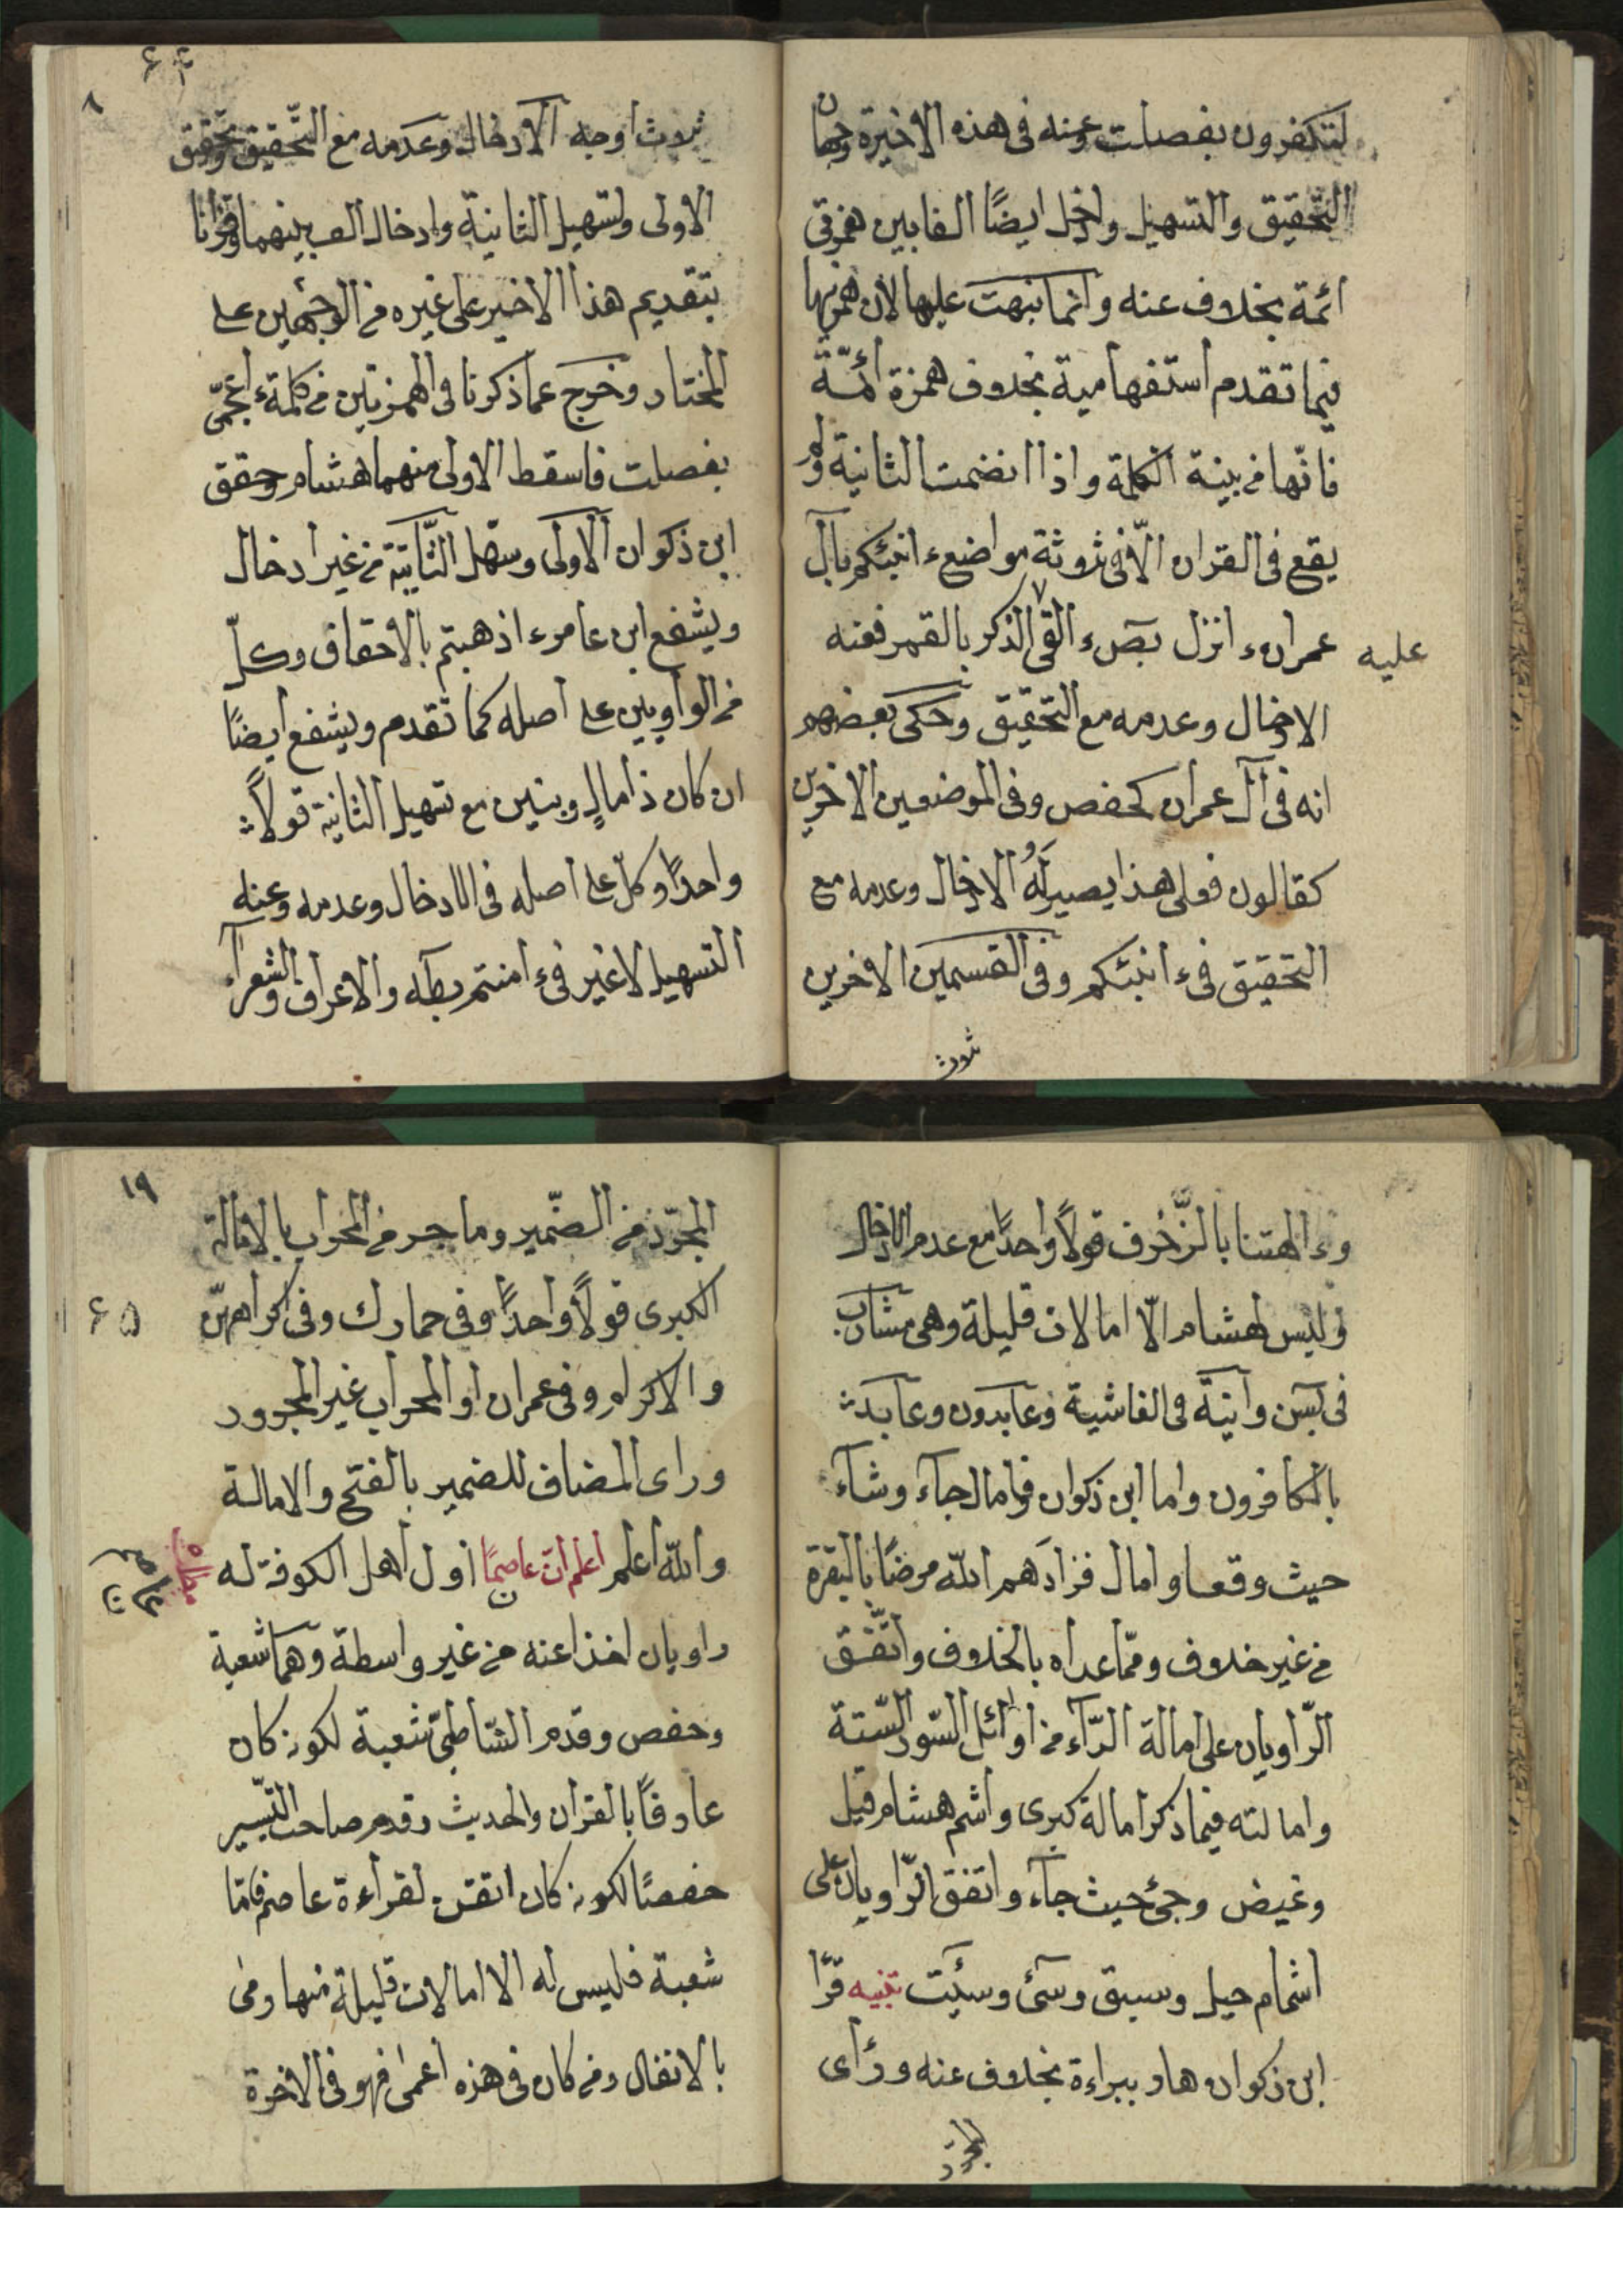 لتكفرون بفصلت وعنه فى هذه الاخيرة وجهان
التحقيق والتسهيل وادخل ايضًا الفا بين همزتى
ائمة بخلاف عنه وانما نبهت عليها لان همزتها
فيما تقدم استفهامية بخلاف همزة أئمّة
فانّها من بنية الكلمة واذا انضمت الثانية ولم
يقع فى القران الّا فى ثلاثة مواضع ء انبئكم بآل
عمران ء انزل بصٓ ء القى الذكر بالقمر فعنه
عليه
الادخال وعدمه مع التحقيق وحكى بعضهم
انه فى آل عمران كحفص وفى الموضعين الاخيرين
كقالون فعلى هذا يصير لَهُ الادخال وعدمه مع
التحقيق فى ء انبئكم وفى القسمين الاخرين
ثلاث
٦٤
٨
ثلاث اوجه الادخال وعدمه مع التّحقيق وتحقيق
الاولى وتسهيل الثانية وادخال الف بينهما وقرانا
بتقديم هذا الاخير على غيره من الوجهين على
المختار وخرج عما ذكرنا فى الهمزتين من كلمة ء اعجمىّ
بفصلت فاسقط الاولى منهما هشام وحقق
ابن ذكوان الاولى وسهّل الثّانية من غير ادخال
ويشفع ابن عامر ء اذهبتم بالاحقاف وكلّ
من الراويين على اصله كما تقدم ويشفع ايضًا
ان كان ذا مالٍ وبنين مع تسهيل الثانية قولاً
واحدًا وكلّ على اصله فى الادخال وعدمه وعنه
التسهيل لا غير فى ء امنتم بطٓه والاعراف والشعرآء
وء الهتنا بالزّخرف قولاً واحدًا مع عدم الادخال
وليس لهشام الّا امالات قليلة وهى مشارب
فى يٓسن وانيَة فى الغاشية وعابدون وعابد
بالكافرون واما ابن ذكوان فامال جآء وشآء
حيث وقعا وامال فزادَهم الله مرضًا بالبقرة
من غير خلاف وممّا عداه بالخلاف واتّفق
الرّاويان على امالة الرّآء من اوائل السّور السّتة
وامالته فيما ذكر امالة كبرى واشم هشام قيل
وغيض وجئ حيث جآء واتفق الرّاويان على
اشمام حيل وسيق وسئ وسيئت تنبيه قرّا
ابن ذكوان هار ببراءة بخلاف عنه ورأى
المجرّد
١٩
المجرّد من الضّمير وما جر من المحراب بالامالة
الكبرى قولاً واحدًا وفى حمارك وفى اكراههنّ
٦٥
والاكرام وفى عمران او المحراب غير المجرور
وراى المضاف للضمير بالفتح والامالة
والله اعلم اعلم انّ عاصمًا اول اهل الكوفة له
عاصم
راويان اخذا عنه من غير واسطة وهما شعبة
وحفص وقدم الشّاطبىّ شعبة لكونه كان
عارفًا بالقرآن والحديث وقدم صاحب التّيسير
حفصًا لكونه كان اتقن لقراءة عاصم فامّا
شعبة فليس له الا امالات قليلة منها رمى
بالانفال ومن كان فى هذه اعمى فهو فى الاخرة